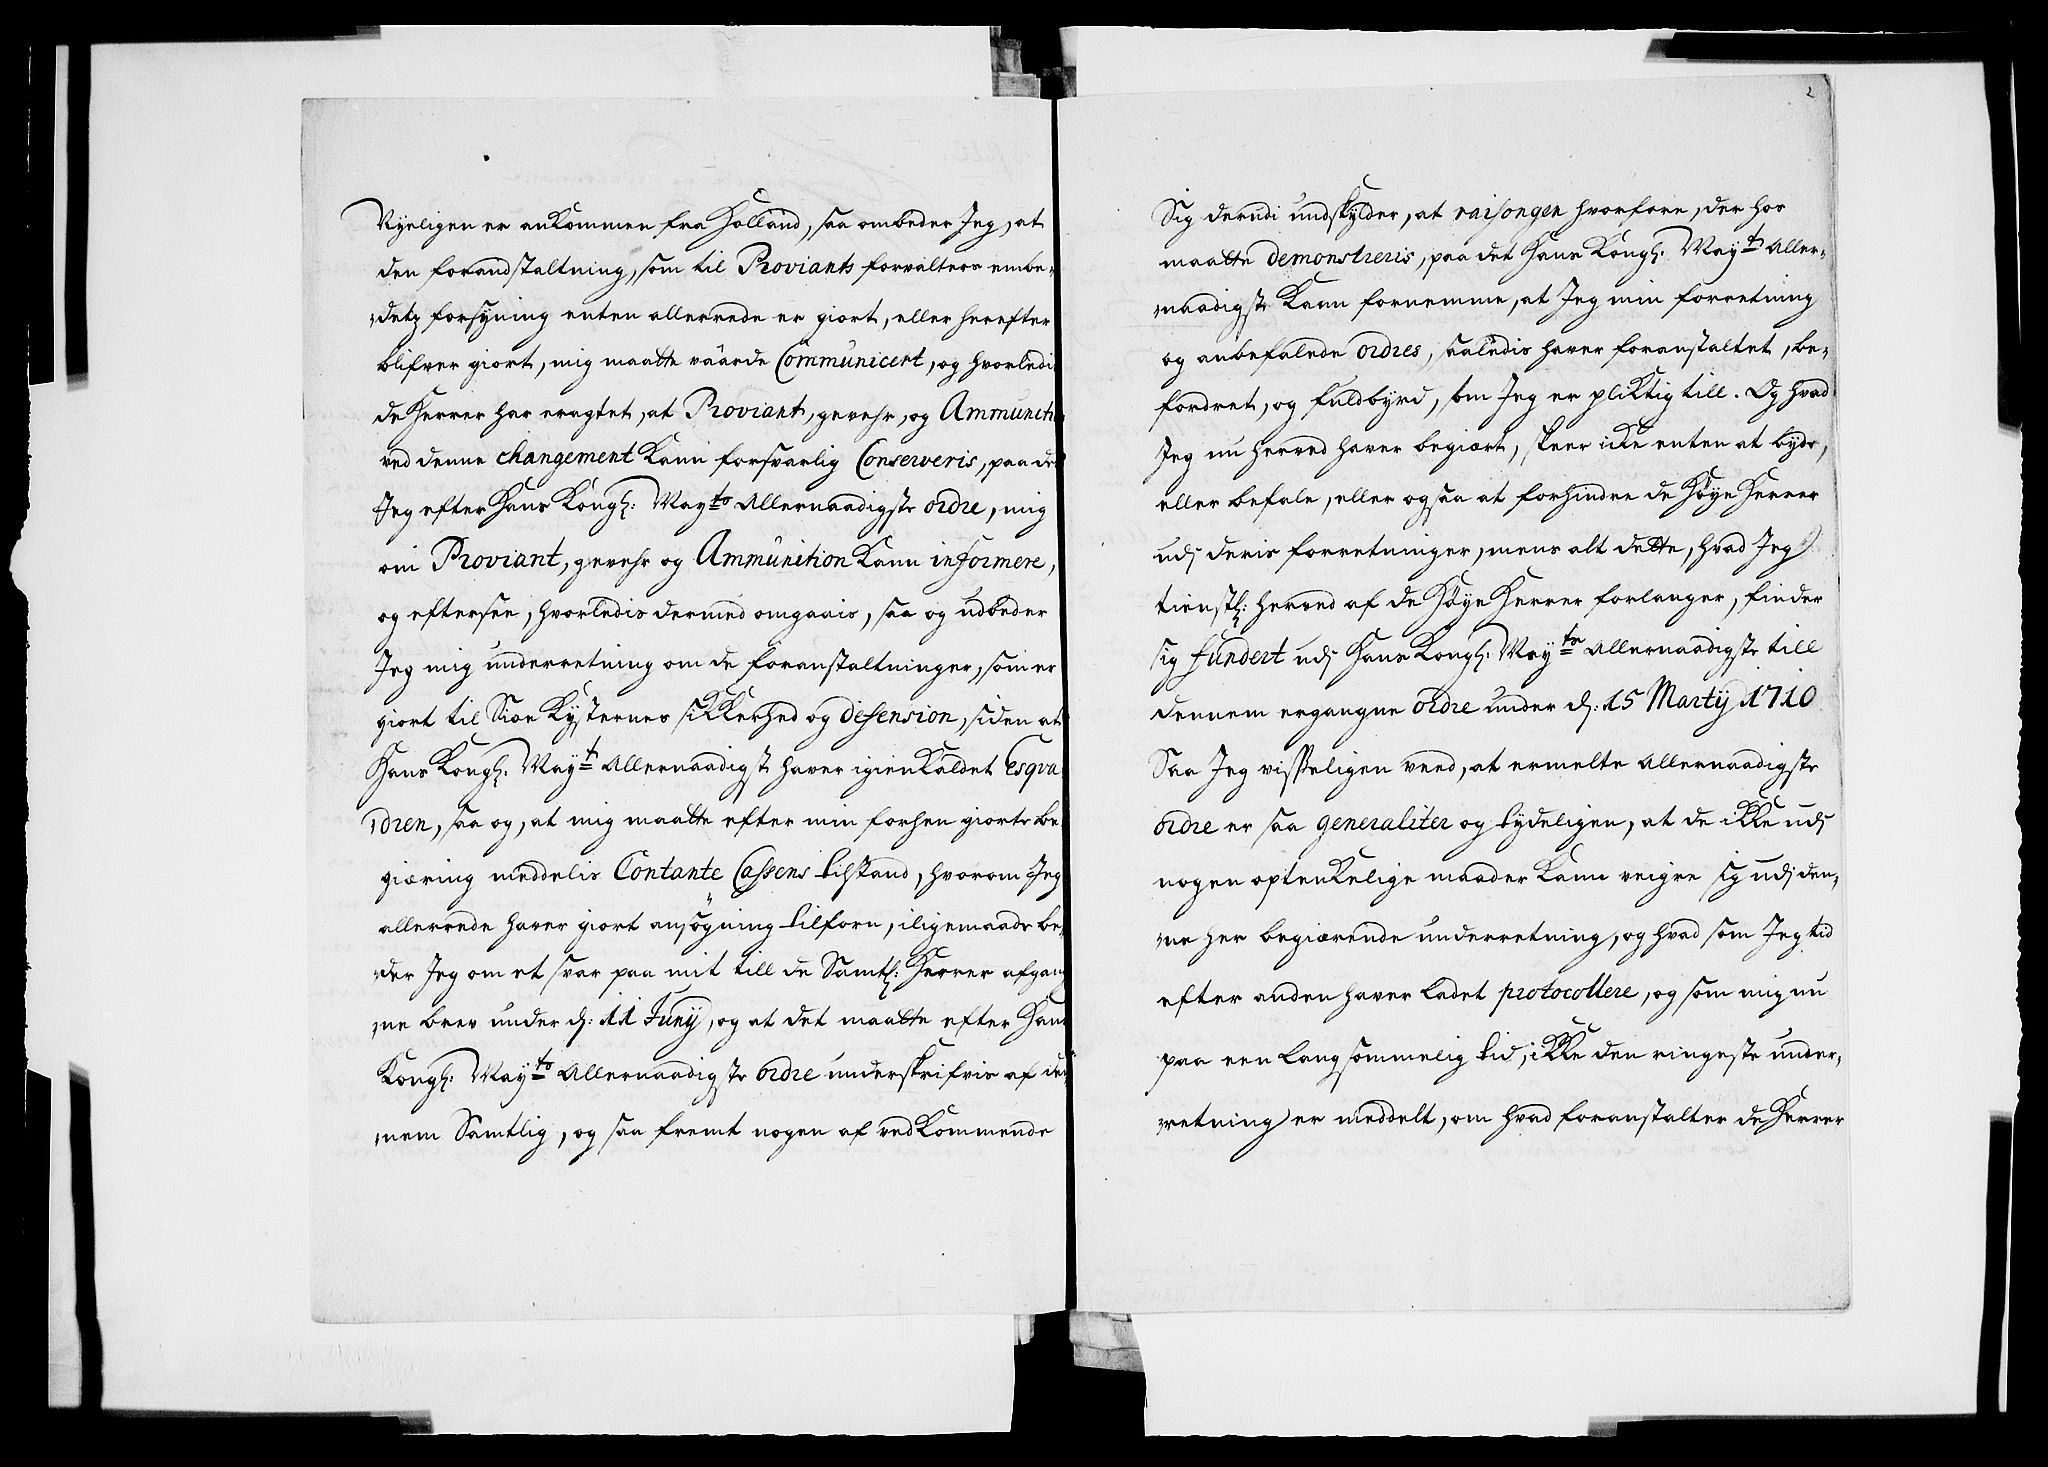 Nyeligen er ankommen fra Holland, saa ombeder Jeg, at
den forandstaltning, som til Proviants forvalters embe-
detz forsyning enten allerrede er giort, eller herefter
blifver giort, mig maatte väärde Communicert, og hvorledi
de Herrer har eragtet, at Proviant, gevehr, og Ammuniti
ved denne changement kann forsvarlig Conserveris, paa de
Jeg efter Hans Kongl: Mayts Allernaadigste ordre, mig
om Proviant, gevehr og Ammunition kann informere,
og eftersee, hvorledis dermed omgaais, saa og udbeder
Jeg mig underretning om de foranstaltninger, som er
giort til Siøe Kysternes sikkerhed og defension, siden at
Hans Kongl: Mayt Allernaadigst haver igienkaldet Esqva
dren, saa og, at mig maatte efter min forhen giorte be
giæring meddelis Contante Cassens bistand, hvorom Jeg
allerrede haver giort ansøgning tilforn, iligemaade be-
der Jeg om et svar paa mit till de Samtl: Herrer afgan
ne brev under d: 11 Juny, og at det maatte efter Hans
Kongl: Mayts Allernaadigste ordre underskrifvis af den
nem Samtlig, og saa fremt nogen af vedkommende
2
Sig derudi undskylder, at raisongen hvorfore, der hos
maatte demonstreris, paa det Hans Kongl: Mayt Aller-
naadigst kann fornemme, at Jeg min forretning
og anbefalede ordres, saaledis haver foranstaltet, be-
fordret, og fuldbyrd, som Jeg er pliktig till. Og hvad
Jeg nu herved haver begiært, skeer ikke enten at byde,
eller befale, eller ogsaa at forhindre de Høye Herrer
udj deris forretninger, mens alt dette, hvad Jeg
tienstl: herved af de Høye Herrer forlanger, finder
sig fundert udj Hans Kongl: Mayts Allernaadigste till
dennem ergangne ordre under d: 15 Martij 1710
Saa Jeg visseligen veed, at ermelte Allernaadigste
ordre er saa generaliter og tydeligen, at de ikke udj
nogen optenkelige maader kann veigre sig udj den-
ne her begiærende underretning, og hvad som Jeg tid
efter anden haver ladet protocollere, og som mig nu
paa een langsommelig tid, ikke den ringeste under-
retning er meddelt, om hvad foranstalter de Herrer